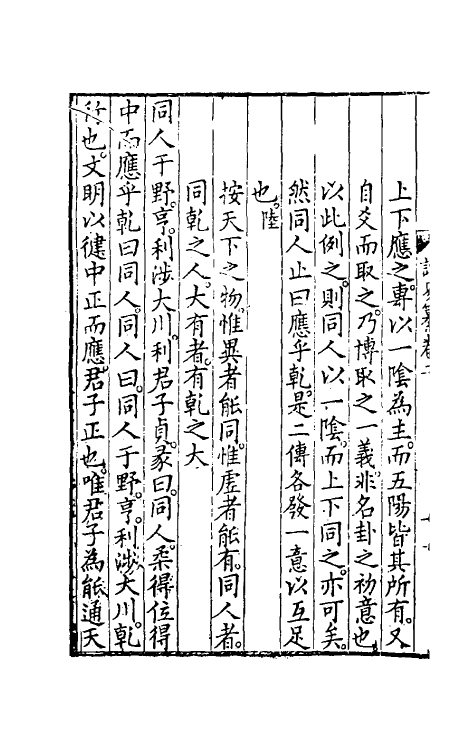 上下應之。專以一隂為主。而五陽皆其所有。又
自爻而取之。乃博取之一義。非名卦之初意也
以此例之。則同人以一隂。而上下同之。亦可矣。
然同人止曰應乎乾。是二傳各發一意以互足
也。陸
按天下之物。惟異者能同。惟虛者能有。同人者。
同乾之人。大有者。有乾之大
同人于野。亨。利涉大川。利君子貞。彖曰。同人。柔得位得
中而應乎乾曰同人。同人曰。同人于野。亨。利涉大川。乾
行也。文明以健中正而應。君子正也。唯君子為能通天